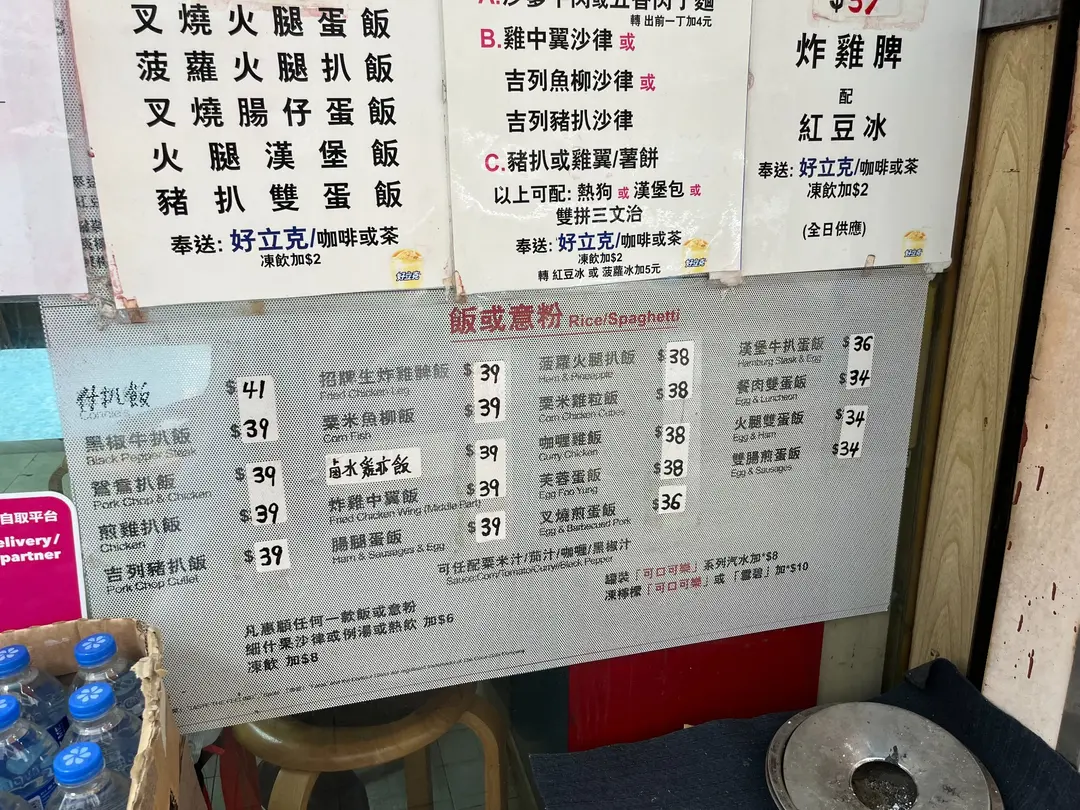 叉燒火腿蛋飯
菠蘿火腿扒飯
叉燒腸仔蛋飯
火腿漢堡飯
豬扒雙蛋飯
奉送: 好立克/咖啡或茶
凍飲加$2
好立克
轉 出前一丁加4元
B.雞中翼沙律 或
吉列魚柳沙律 或
吉列豬扒沙律
C.豬扒或雞翼/薯餅
以上可配: 熱狗 或 漢堡包 或
雙拼三文治
奉送: 好立克/咖啡或茶
凍飲加$2
轉 紅豆冰 或 菠蘿冰加5元
好立克
$37
炸雞脾
配
紅豆冰
奉送: 好立克/咖啡或茶
凍飲加$2
(全日供應)
好立克
飯或意粉 Rice/Spaghetti
扒飯 $41
黑椒牛扒飯 $39
Black Pepper Steak
鴛鴦扒飯 $39
Pork Chop & Chicken
煎雞扒飯 $39
Chicken
吉列豬扒飯 $39
Pork Chop Cutlet
招牌生炸雞髀飯 $39
Fried Chicken
粟米魚柳飯 $39
Corn Fish
鹵水雞亦飯 $39
炸雞中翼飯 $39
Fried Chicken Wing (Middle Part)
腸腿蛋飯 $39
Ham & Sausages & Egg
菠蘿火腿扒飯 $38
Ham & Pineapple
粟米雞粒飯 $38
Corn Chicken Cubes
咖喱雞飯 $38
Curry Chicken
芙蓉蛋飯 $38
Egg Foo Yung
叉燒煎蛋飯 $36
Egg & Barbecued Pork
漢堡牛扒蛋飯 $36
Hamburg Steak & Egg
餐肉雙蛋飯 $34
Egg & Luncheon
火腿雙蛋飯 $34
Egg & Ham
雙腸煎蛋飯 $34
Egg & Sausages
可任配粟米汁/茄汁/咖喱/黑椒汁
Sauce:Corn/Tomato/Curry/Black Pepper
罐裝「可口可樂」系列汽水加*$8
凍檸檬「可口可樂」或「雪碧」加*$10
凡惠顧任何一款飯或意粉
細什果沙律或例湯或熱飲 加$6
凍飲 加$8
自取平台
elivery/
partner